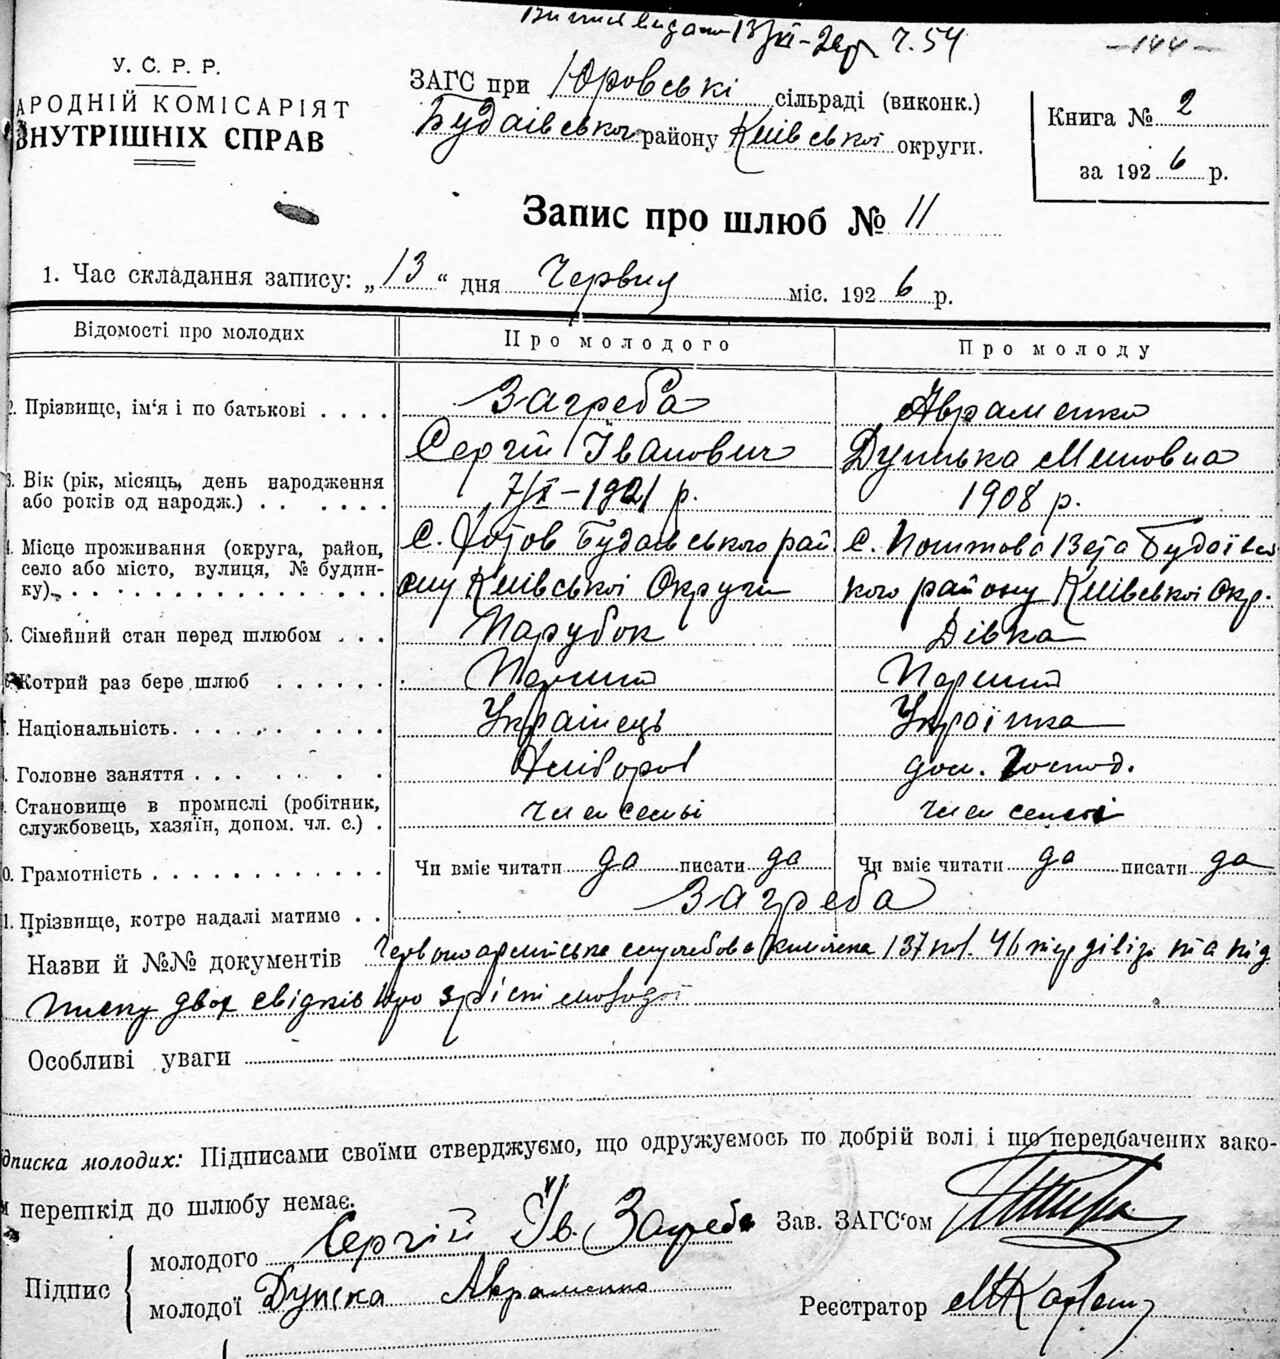 13/XI-26р ч. 54
-144-
У. С. Р. Р.
АРОДНІЙ КОМІСАРІЯТ
ВНУТРІШНІХ СПРАВ
ЗАГС при Юровські сільраді (виконк.)
Будаівського району Київської округи.
Книга № 2
за 1926 р.
Запис про шлюб № 11
1. Час складання запису: „13“ дня Червня міс. 1926 р.
Відомості про молодих
Про молодого
Про молоду
2. Прізвище, ім‘я і по батькові
Загреба
Сергій Іванович
Авраменко
Дунька Миновна
3. Вік (рік, місяць, день народження
або років од народж.)
7/X-1901 р.
1908 р.
4. Місце проживання (округа, район,
село або місто, вулиця, № будин-
ку)
С. Хотов Будаівського рай
ону Київської Округи
С. Поштова Віта Будаївсь
кого району Київської Окр.
5. Сімейний стан перед шлюбом
Парубок
Дівка
6. Котрий раз бере шлюб
Перший
Перший
7. Національність
Українець
Українка
8. Головне заняття
Хлібороб
дом. Господ.
9. Становище в промислі (робітник,
службовець, хазяїн, допом. чл. с.)
член семьі
член семьі
10. Грамотність
Чи вміє читати да писати да
Чи вміє читати да писати да
1. Прізвище, котре надалі матиме
Загреба
Назви й №№ документів Червоноармійська службова книжка 137 пол. 46 тер дівізі та під
писку двох свідків про зрість молодої
Особливі уваги
дписка молодих: Підписами своїми стверджуємо, що одружуемось по добрій волі і що передбачених зако-
м перешкід до шлюбу немає.
Підпис
молодого Сергій Ів. Загреба
молодої Дунька Авраменко
Зав. ЗАГС‘ом
Реєстратор